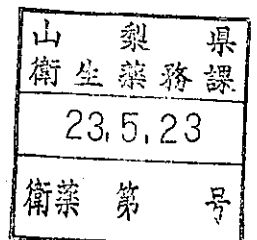 山梨県
衛生薬務課
23.5.23
衛薬第 号